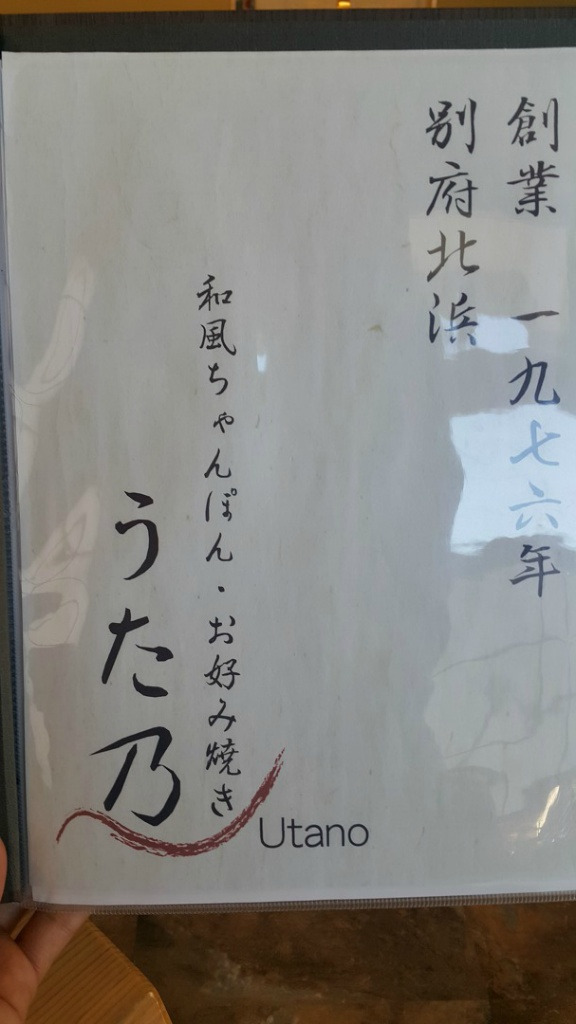 創業 一九七六年
別府北浜
和風ちゃんぽん・お好み焼き
うた乃
Utano